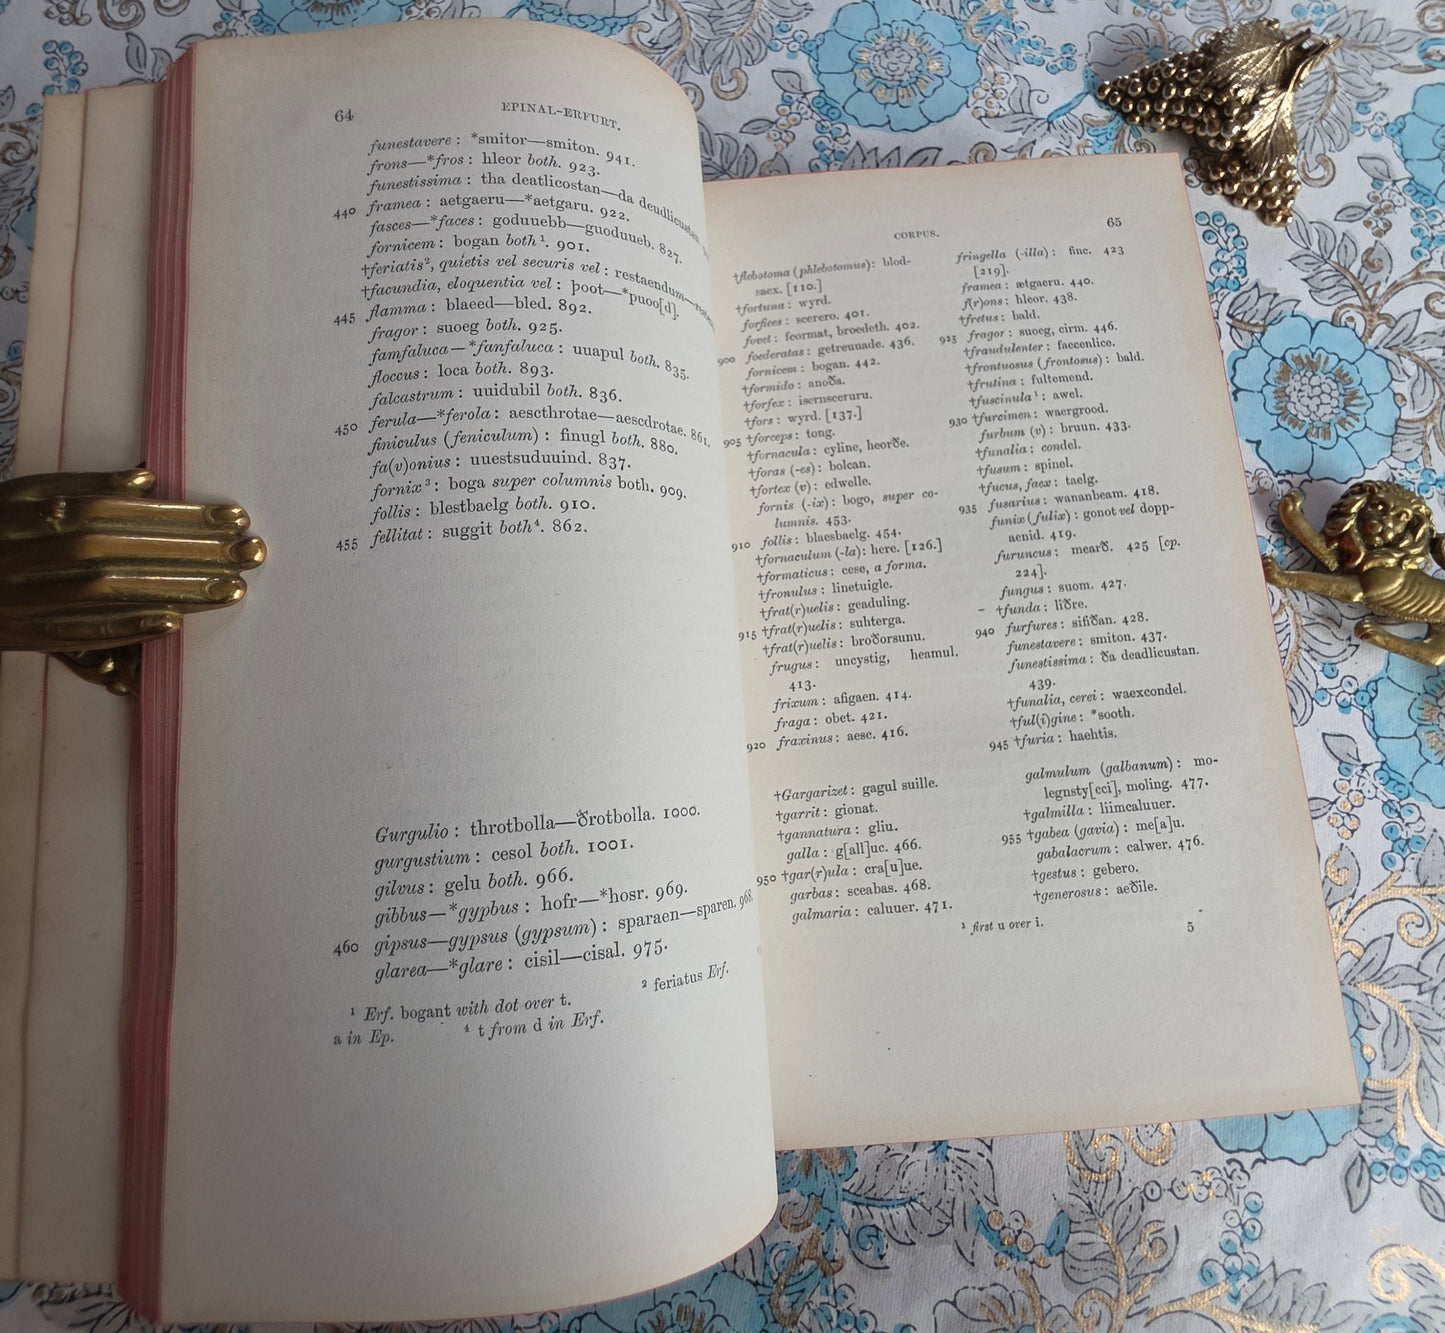 64
EPINAL-ERFURT.
funestavere : *smitor—smiton. 941.
frons—*fros : hleor both. 923.
funestissima : tha deatlicostan—da deudlicustan.
440 framea : aetgaeru—*aetgaru. 922.
fasces—*faces : goduuebb—guoduueb. 827.
fornicem : bogan both¹. 901.
†feriatis², quietis vel securis vel : restaendum—
†facundia, eloquentia vel : þoot—*puoo[d].
445 flamma : blaeed—bled. 892.
fragor : suoeg both. 925.
famfaluca—*fanfaluca : uuapul both. 835.
floccus : loca both. 893.
falcastrum : uuidubil both. 836.
450 ferula—*ferola : aescthrotae—aescdrotae. 861.
finiculus (feniculum) : finugl both. 880.
fa(v)onius : uuestsuduuind. 837.
fornix³ : boga super columnis both. 909.
follis : blestbaelg both. 910.
455 fellitat : suggit both⁴. 862.
Gurgulio : throtbolla—ðrotbolla. 1000.
gurgustium : cesol both. 1001.
gilvus : gelu both. 966.
gibbus—*gypbus : hofr—*hosr. 969.
460 gipsus—gypsus (gypsum) : sparaen—sparen. 968.
glarea—*glare : cisil—cisal. 975.
¹ Erf. bogant with dot over t.
² feriatus Erf.
a in Ep.
⁴ t from d in Erf.
CORPUS.
65
†flebotoma (phlebotomus) : blod-
saex. [110.]
†fortuna : wyrd.
forfices : scerero. 401.
fovet : feormat, broedeth. 402.
900 foederatas : getreuuade. 436.
fornicem : bogan. 442.
†formido : anoða.
†forfex : isernsceruru.
†fors : wyrd. [137.]
905 †forceps : tong.
†fornacula : cyline, heorðe.
†foras (-es) : bolcan.
†fortex (v) : edwelle.
fornis (-ix) : bogo, super co-
lumnis. 453.
910 follis : blaesbaelg. 454.
†fornaculum (-la) : here. [126.]
†formaticus : cese, a forma.
†fronulus : linetuigle.
†frat(r)uelis : geaduling.
915 †frat(r)uelis : suhterga.
†frat(r)uelis : broðorsunu.
frugus : uncystig, heamul.
413.
frixum : afigaen. 414.
fraga : obet. 421.
920 fraxinus : aesc. 416.
†Gargarizet : gagul suille.
†garrit : gionat.
†gannatura : gliu.
galla : g[all]uc. 466.
950 †gar(r)ula : cra[u]ue.
garbas : sceabas. 468.
galmaria : caluuer. 471.
fringella (-illa) : finc. 423
[219].
framea : ætgaeru. 440.
f(r)ons : hleor. 438.
†fretus : bald.
925 fragor : suoeg, cirm. 446.
†fraudulenter : faecenlice.
†frontuosus (frontosus) : bald.
†frutina : fultemend.
†fuscinula¹ : awel.
930 †furcimen : waergrood.
furbum (v) : bruun. 433.
†funalia : condel.
†fusum : spinel.
†fucus, faex : taelg.
935 fusarius : wananbeam. 418.
funix (fulix) : gonot vel dopp-
aenid. 419.
furuncus : mearð. 425 [cp.
224].
fungus : suom. 427.
†funda : liðre.
940 furfures : sifiðan. 428.
funestavere : smiton. 437.
funestissima : ða deadlicustan.
439.
†funalia, cerei : waexcondel.
†ful(i)gine : *sooth.
945 †furia : haehtis.
galmulum (galbanum) : mo-
legnsty[cci], moling. 477.
†galmilla : liimcaluuer.
955 †gabea (gavia) : me[a]u.
gabalacrum : calwer. 476.
†gestus : gebero.
†generosus : aeðile.
¹ first u over i.
5